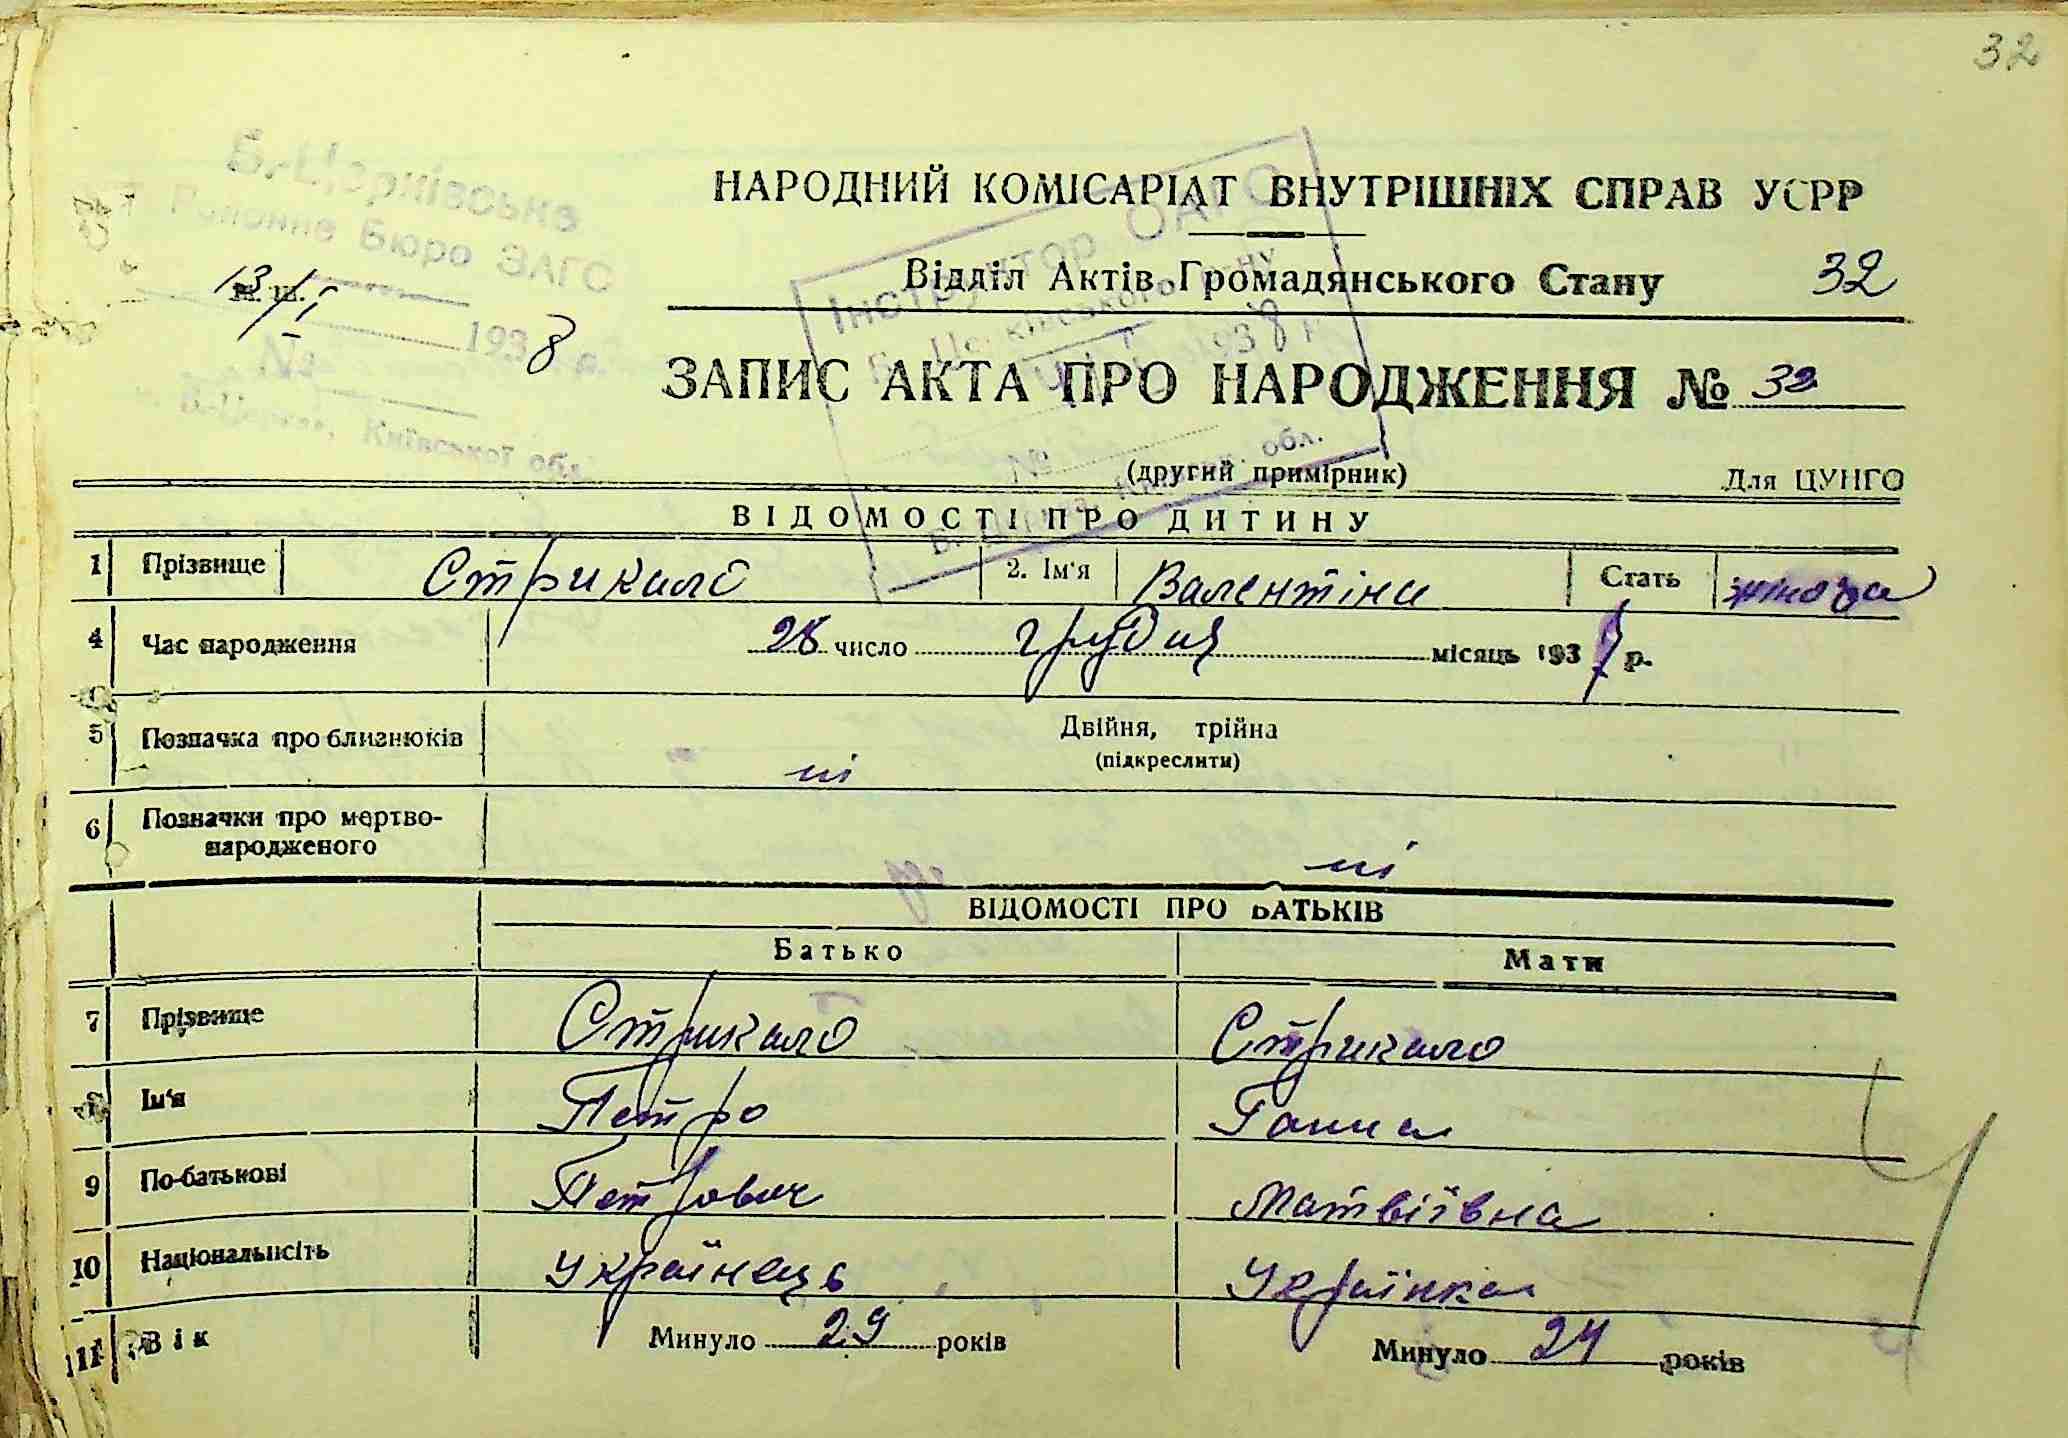 32
Б.-Церківське
Районне Бюро ЗАГС
13/I 1938 р.
№
Б-Церква, Київської обл.
Інструктор ОАГС
1938 р.
№
обл.
НАРОДНИЙ КОМІСАРІАТ ВНУТРІШНІХ СПРАВ УСРР
Відділ Актів Громадянського Стану 32
ЗАПИС АКТА ПРО НАРОДЖЕННЯ № 32
(другий примірник) Для ЦУНГО
ВІДОМОСТІ ПРО ДИТИНУ
1 Прізвище Стрикало 2. Ім'я Валентіна Стать жіноча
4 Час народження 28 число грудня місяць 1937 р.
5 Позначка про близнюків Двійня, трійна
(підкреслити)
ні
6 Позначки про мертво-
народженого
ні
ВІДОМОСТІ ПРО БАТЬКІВ
Батько Мати
7 Прізвище Стрикало Стрикало
8 Ім'я Петро Ганна
9 По-батькові Петрович Матвіївна
10 Національність Українець Українка
11 Вік Минуло 29 років Минуло 24 років